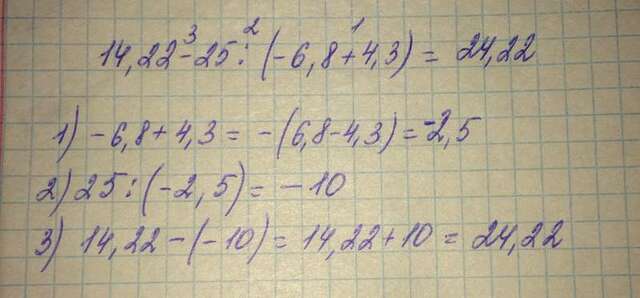 3 2 1
14,22 - 25 : (-6,8 + 4,3) = 24,22
1) -6,8 + 4,3 = -(6,8 - 4,3) = -2,5
2) 25 : (-2,5) = -10
3) 14,22 - (-10) = 14,22 + 10 = 24,22